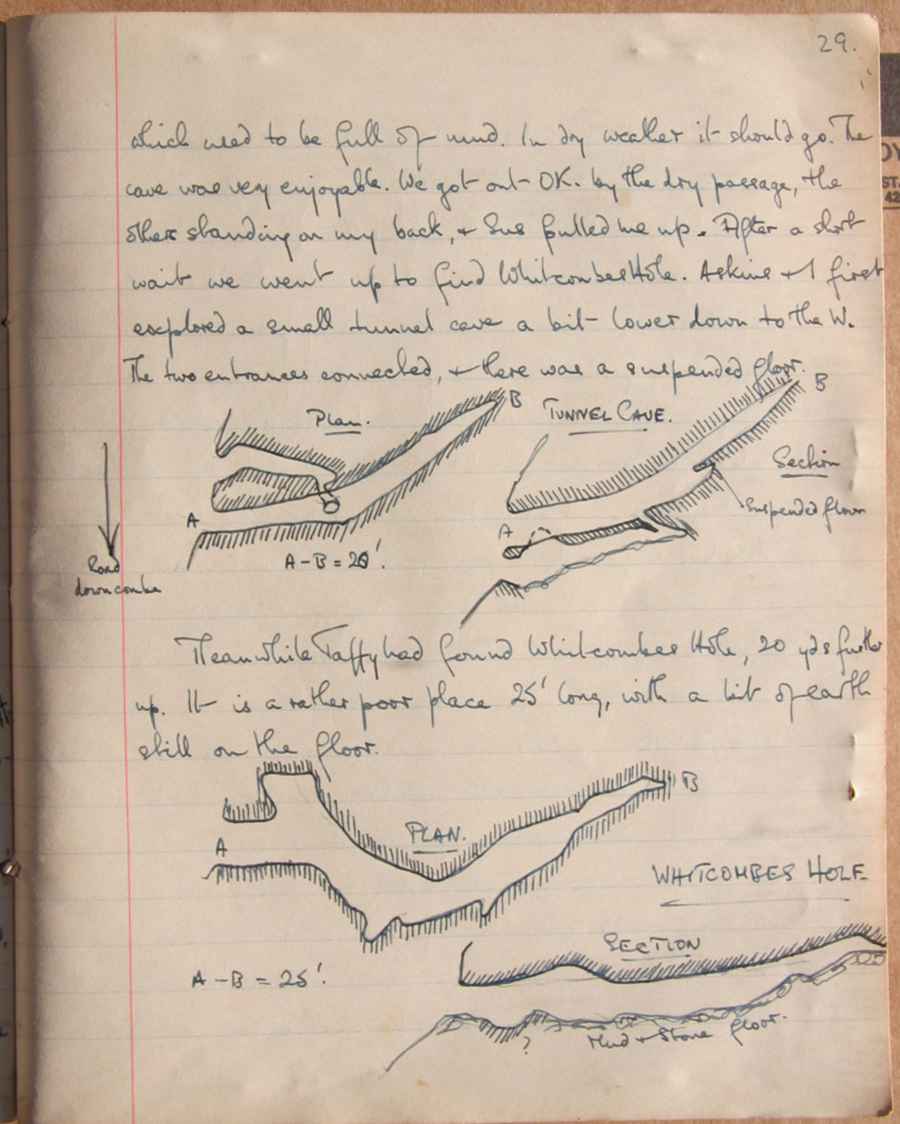 29.
which used to be full of mud. In dry weather it should go. The
cave was very enjoyable. We got out OK. by the dry passage, the
others standing on my back, & Sus pulled me up. After a short
wait we went up to find Whitcombes Hole. Askins & I first
explored a small tunnel cave a bit lower down to the W.
The two entrances connected, & there was a suspended floor.
Plan.
B
TUNNEL CAVE.
B
Section
Suspended floor
A
A
A-B = 20'.
Road
down combe
Meanwhile Taffy had found Whitcombes Hole, 20 yds further
up. It is a rather poor place 25' long, with a bit of earth
still on the floor.
B
PLAN.
A
WHITCOMBES HOLE
SECTION
A-B = 25'.
Mud & Stone floor.
?
DY
ST.
42